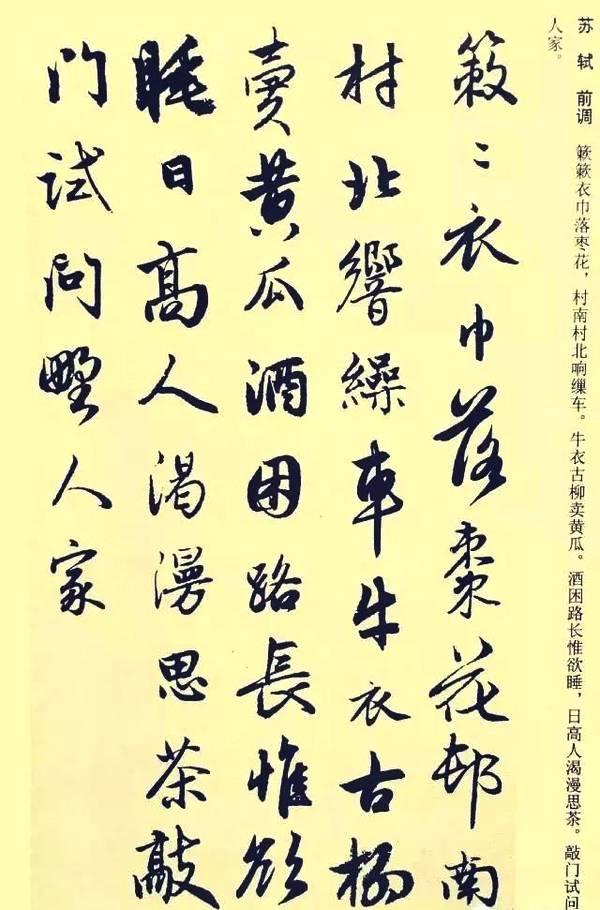 苏轼 前调 簌簌衣巾落枣花，村南村北响缫车。牛衣古柳卖黄瓜。酒困路长惟欲睡，日高人渴漫思茶。敲门试问
人家。
簌〻衣巾落棗花邨南
村北響繰車牛衣古柳
賣黄瓜酒困路長惟欲
睡日高人渴漫思茶敲
门試问野人家